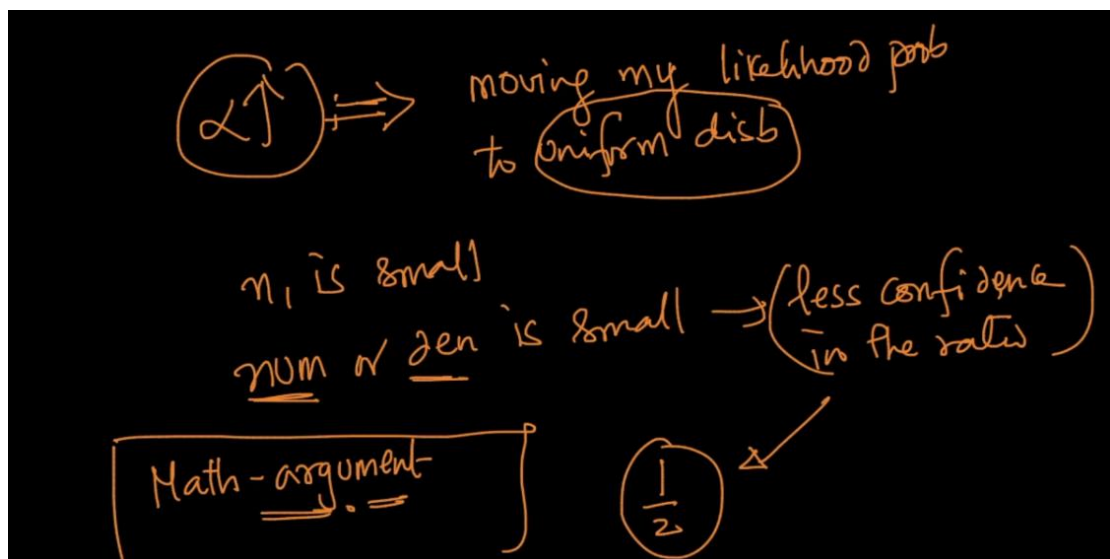 α↑ ⇒ moving my likelihood prob
to uniform disb
n₁ is small
num or den is small → (less confidence
in the ratio)
Math-argument
1/2